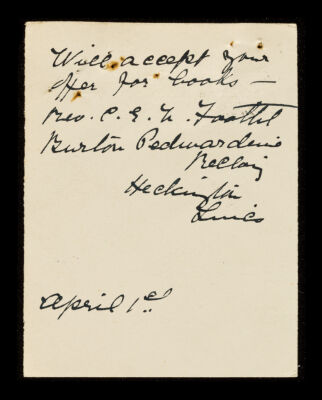 Will accept your
offer for books —
Rev. C. E. N.
Burton Pedwardine
Rectory
Heckington
Lincs
April 1st